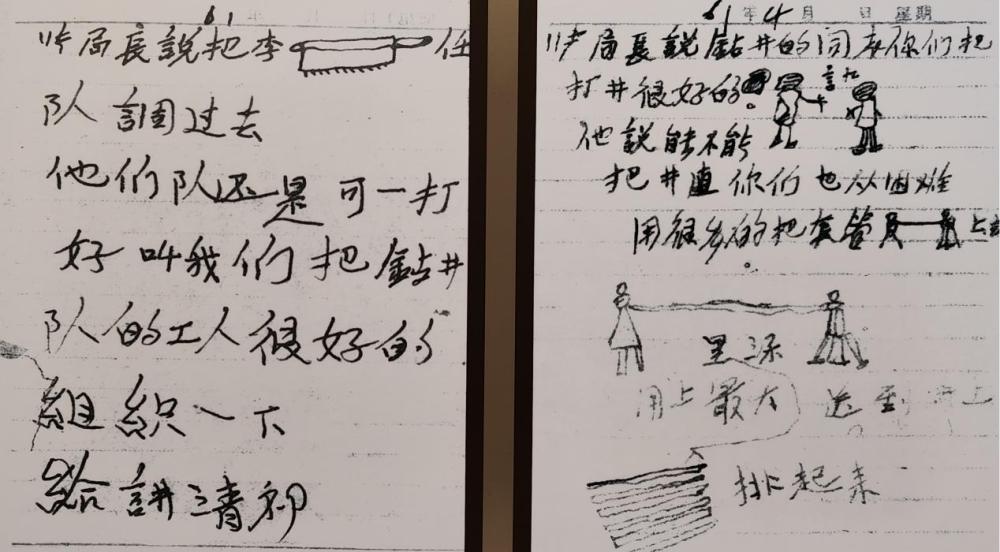 61
局長說把李 任
队調过去
他们队还是可一打
好叫我们把鉆井
队的工人很好的
組織一下
給講清
61年4月 日 星期
局長說鉆井的 你们把
打井很好的。
他說能不能
把井直你们也从困难
用很多的把套管 上去
里深
用上最大 送到 井上
排起来